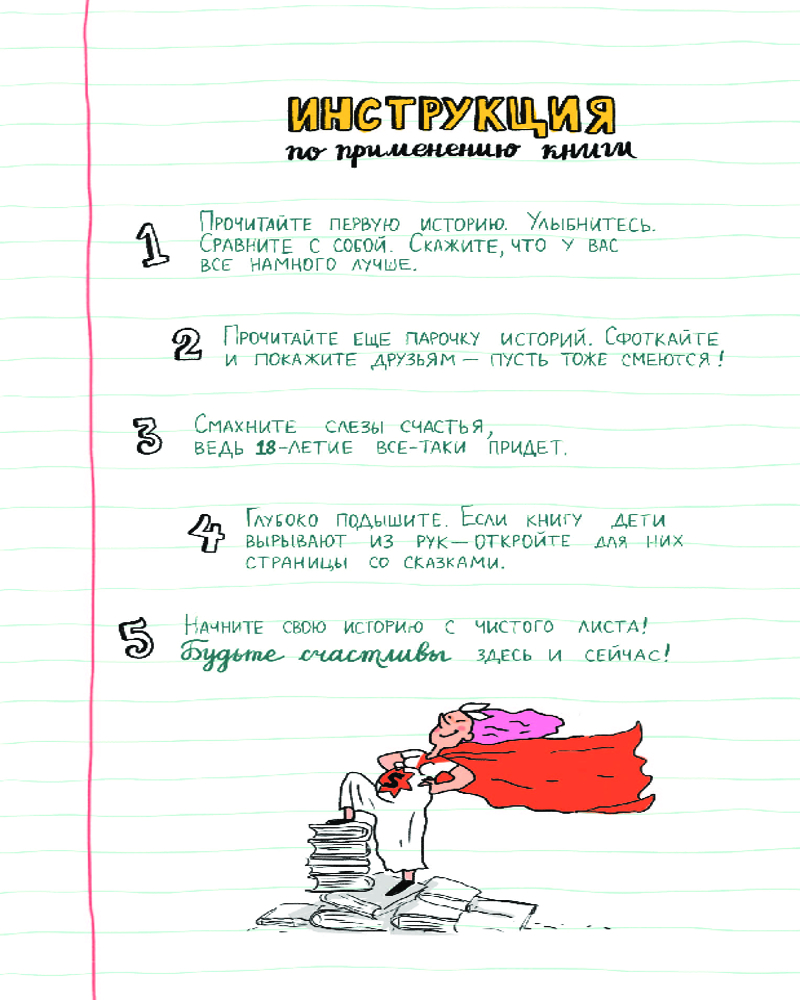 ИНСТРУКЦИЯ
по применению книги
1 Прочитайте первую историю. Улыбнитесь.
Сравните с собой. Скажите, что у вас
все намного лучше.
2 Прочитайте еще парочку историй. Сфоткайте
и покажите друзьям — пусть тоже смеются!
3 Смахните слезы счастья,
ведь 18-летие все-таки придет.
4 Глубоко подышите. Если книгу дети
вырывают из рук — откройте для них
страницы со сказками.
5 Начните свою историю с чистого листа!
Будьте счастливы здесь и сейчас!
S